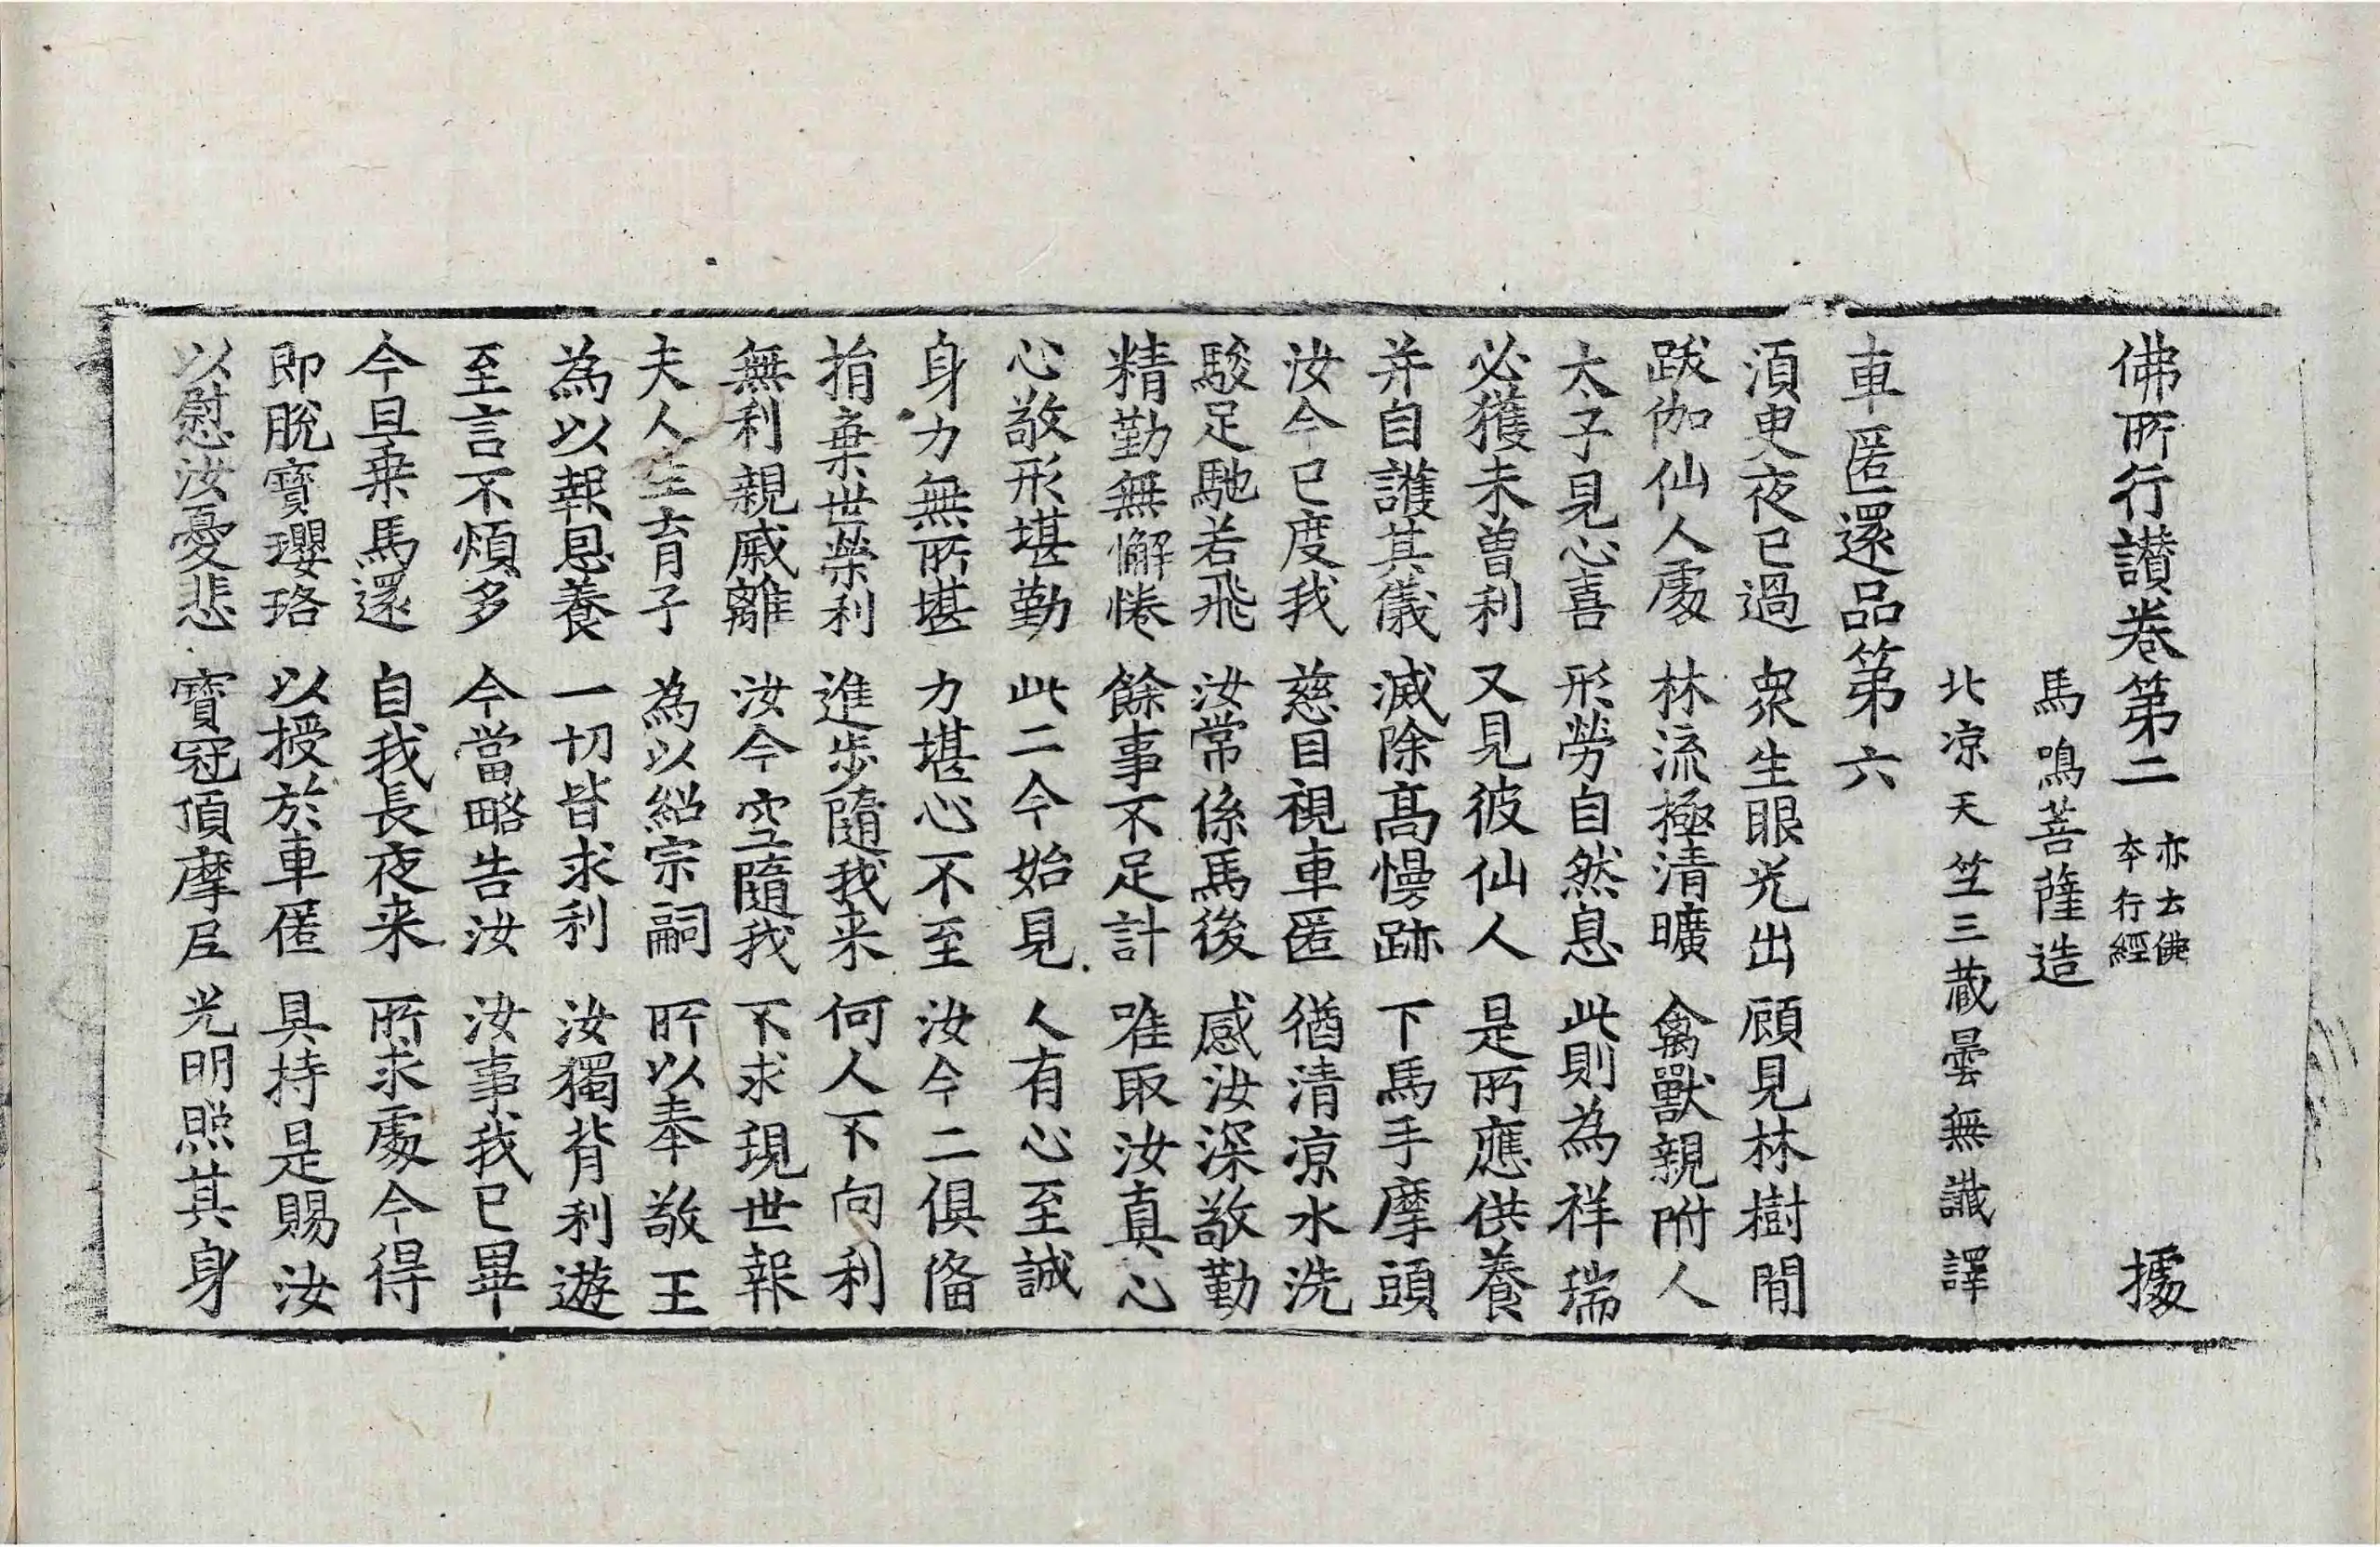 佛所行讃卷第二 亦云佛本行經 據
馬鳴菩薩造
北涼天竺三藏曇無讖譯
車匿還品第六
須臾夜已過 衆生眼光出 顧見林樹間
跋伽仙人處 林流極清曠 禽獸親附人
太子見心喜 形勞自然息 此則為祥瑞
必獲未曽利 又見彼仙人 是所應供養
并自護其儀 滅除高慢跡 下馬手摩頭
汝今已度我 慈目視車匿 猶清涼水洗
駿足馳若飛 汝常係馬後 感汝深敬勤
精勤無懈惓 餘事不足計 唯取汝真心
心敬形堪勤 此二今始見 人有心至誠
身力無所堪 力堪心不至 汝今二俱俻
捐棄世榮利 進步隨我来 何人不向利
無利親戚離 汝今空隨我 不求現世報
夫人生育子 為以紹宗嗣 所以奉敬王
為以報恩養 一切皆求利 汝獨背利遊
至言不煩多 今當略告汝 汝事我已畢
今旦乗馬還 自我長夜来 所求處今得
即脫寶瓔珞 以授於車匿 具持是賜汝
以慰汝憂悲 寶冠頂摩尼 光明照其身